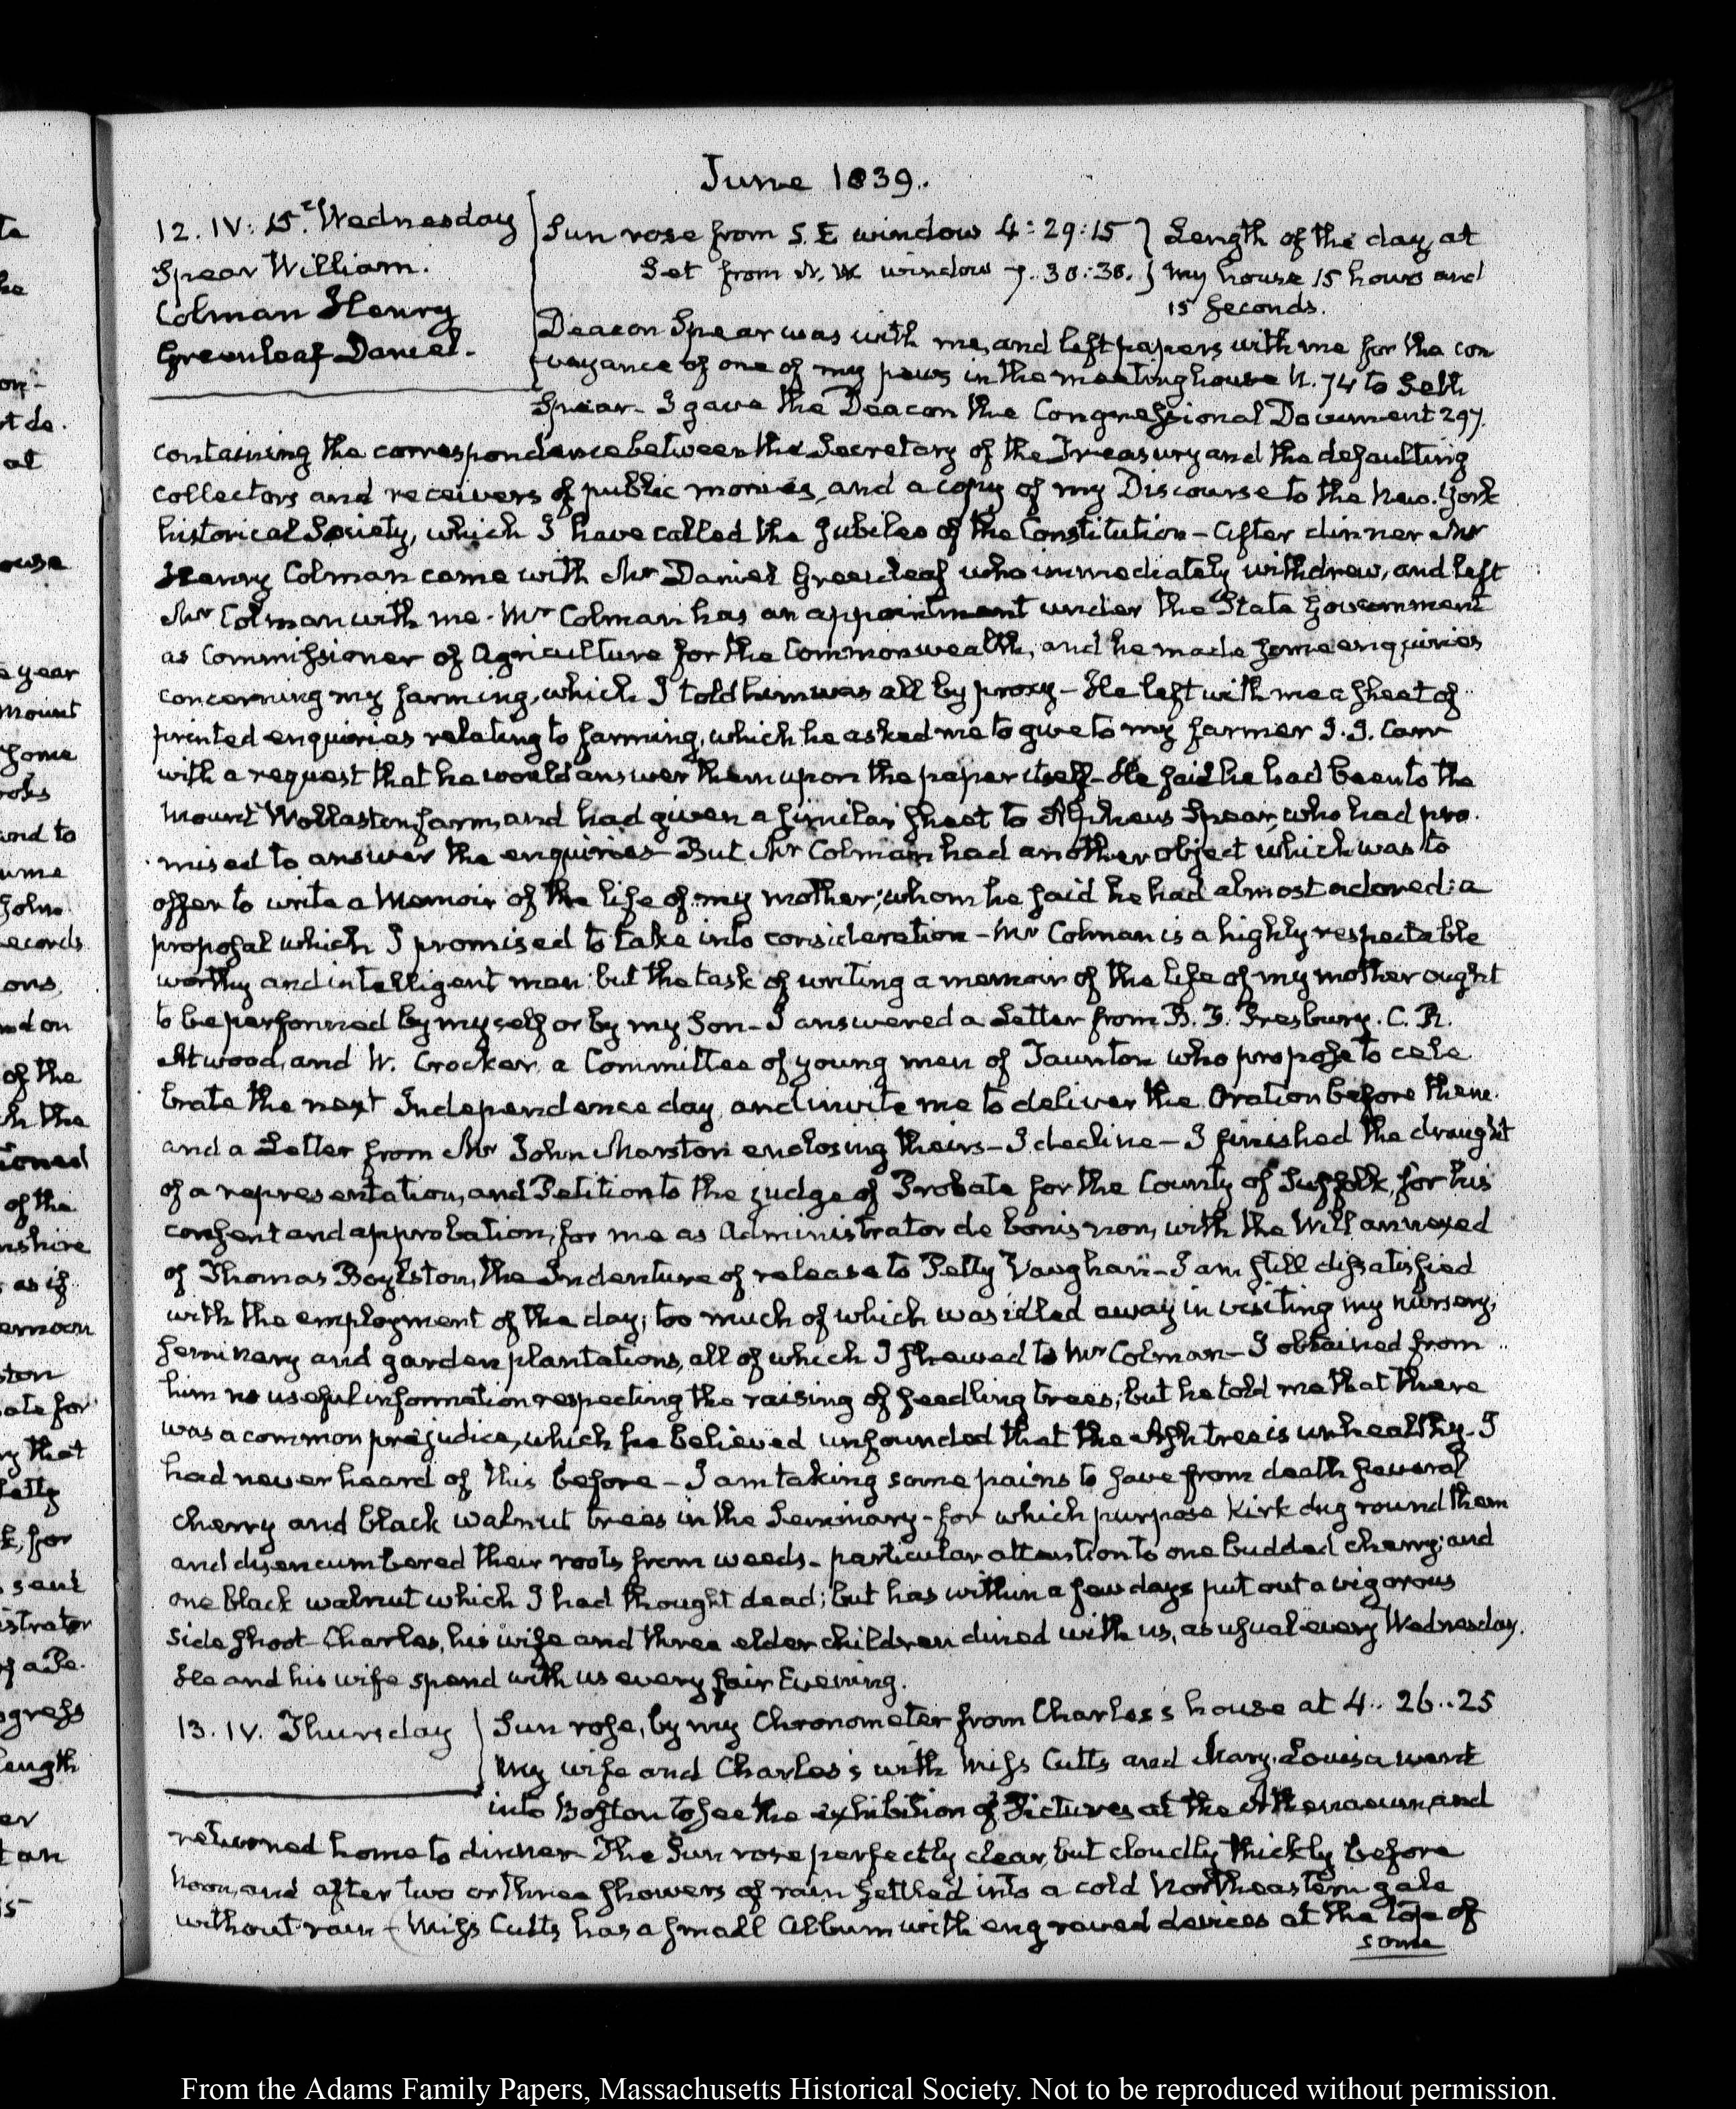 June 1839.
12. IV: 15.' Wednesday
Spear William.
Colman Henry
Greenleaf Daniel.
Sun rose from S.E window 4:29:15 } Length of the day, at
Set from N.W window 7.30:30. } my house 15 hours and
15 seconds.
Deacon Spear was with me, and left papers with me for the con
veyance of one of my pews in the meeting house N. 74 to Seth
Spear- I gave the Deacon the Congressional Document 297.
containing the correspondence between the Secretary of the Treasury and the defaulting
collectors and receivers of public monies, and a copy of my Discourse to the New-York
historical Society, which I have called the Jubilee of the Constitution - After dinner Mr
Henry Colman came with Mr Daniel Greenleaf who immediately withdrew, and left
Mr Colman with me. Mr Colman has an appointment under the State Government
as Commissioner of Agriculture for the Commonwealth, and he made some enquiries
concerning my farming, which I told him was all by proxy - He left with me a sheet of
printed enquiries relating to farming, which he asked me to give to my farmer J. J. Carr
with a request that he would answer them upon the paper itself - He said he had been to the
Mount Wollaston farm, and had given a similar sheet to Alpheus Spear, who had pro-
mised to answer the enquiries - But Mr Colman had another object which was to
offer to write a Memoir of the life of my mother; whom he said he had almost adored: a
proposal which I promised to take into consideration - Mr Colman is a highly respectable
worthy and intelligent man: but the task of writing a memoir of the life of my mother ought
to be performed by myself or by my Son - I answered a Letter from B. F. Presbury. C. R.
Atwood, and W. Crocker, a Committee of young men of Taunton who propose to cele
brate the next Independence day, and invite me to deliver the Oration before them.
and a Letter from Mr John Marston enclosing theirs - I decline - I finished the draught
of a representation, and Petition to the judge of Probate for the County of Suffolk, for his
consent and approbation, for me as Administrator de bonis non, with the Will annexed
of Thomas Boylston, the Indenture of release to Petty Vaughan - I am still dissatisfied
with the employment of the day; too much of which was idled away in visiting my nursery,
seminary and garden plantations, all of which I shewed to Mr Colman - I obtained from
him no useful information respecting the raising of seedling trees; but he told me that there
was a common prejudice, which he believed unfounded that the Ash tree is unhealthy - I
had never heard of this before - I am taking some pains to save from death several
cherry and black walnut trees in the Seminary - for which purpose Kirk dug round them
and disencumbered their roots from weeds - particular attention to one budded cherry; and
one black walnut which I had thought dead; but has within a few days put out a vigorous
side shoot - Charles, his wife and three elder children dined with us, as usual every Wednesday.
He and his wife spend with us every fair Evening.
13. IV. Thursday
Sun rose, by my Chronometer from Charles's house at 4..26..25
My wife and Charles's with Miss Cutts and Mary-Louisa went
into Boston to see the exhibition of Pictures at the Athenaeum, and
returned home to dinner - The Sun rose perfectly clear, but cloudly thickly before
Noon, and after two or three showers of rain settled into a cold Northeastern gale
without rain - Miss Cutts has a small Album with engraved devices at the top of
some
From the Adams Family Papers, Massachusetts Historical Society. Not to be reproduced without permission.